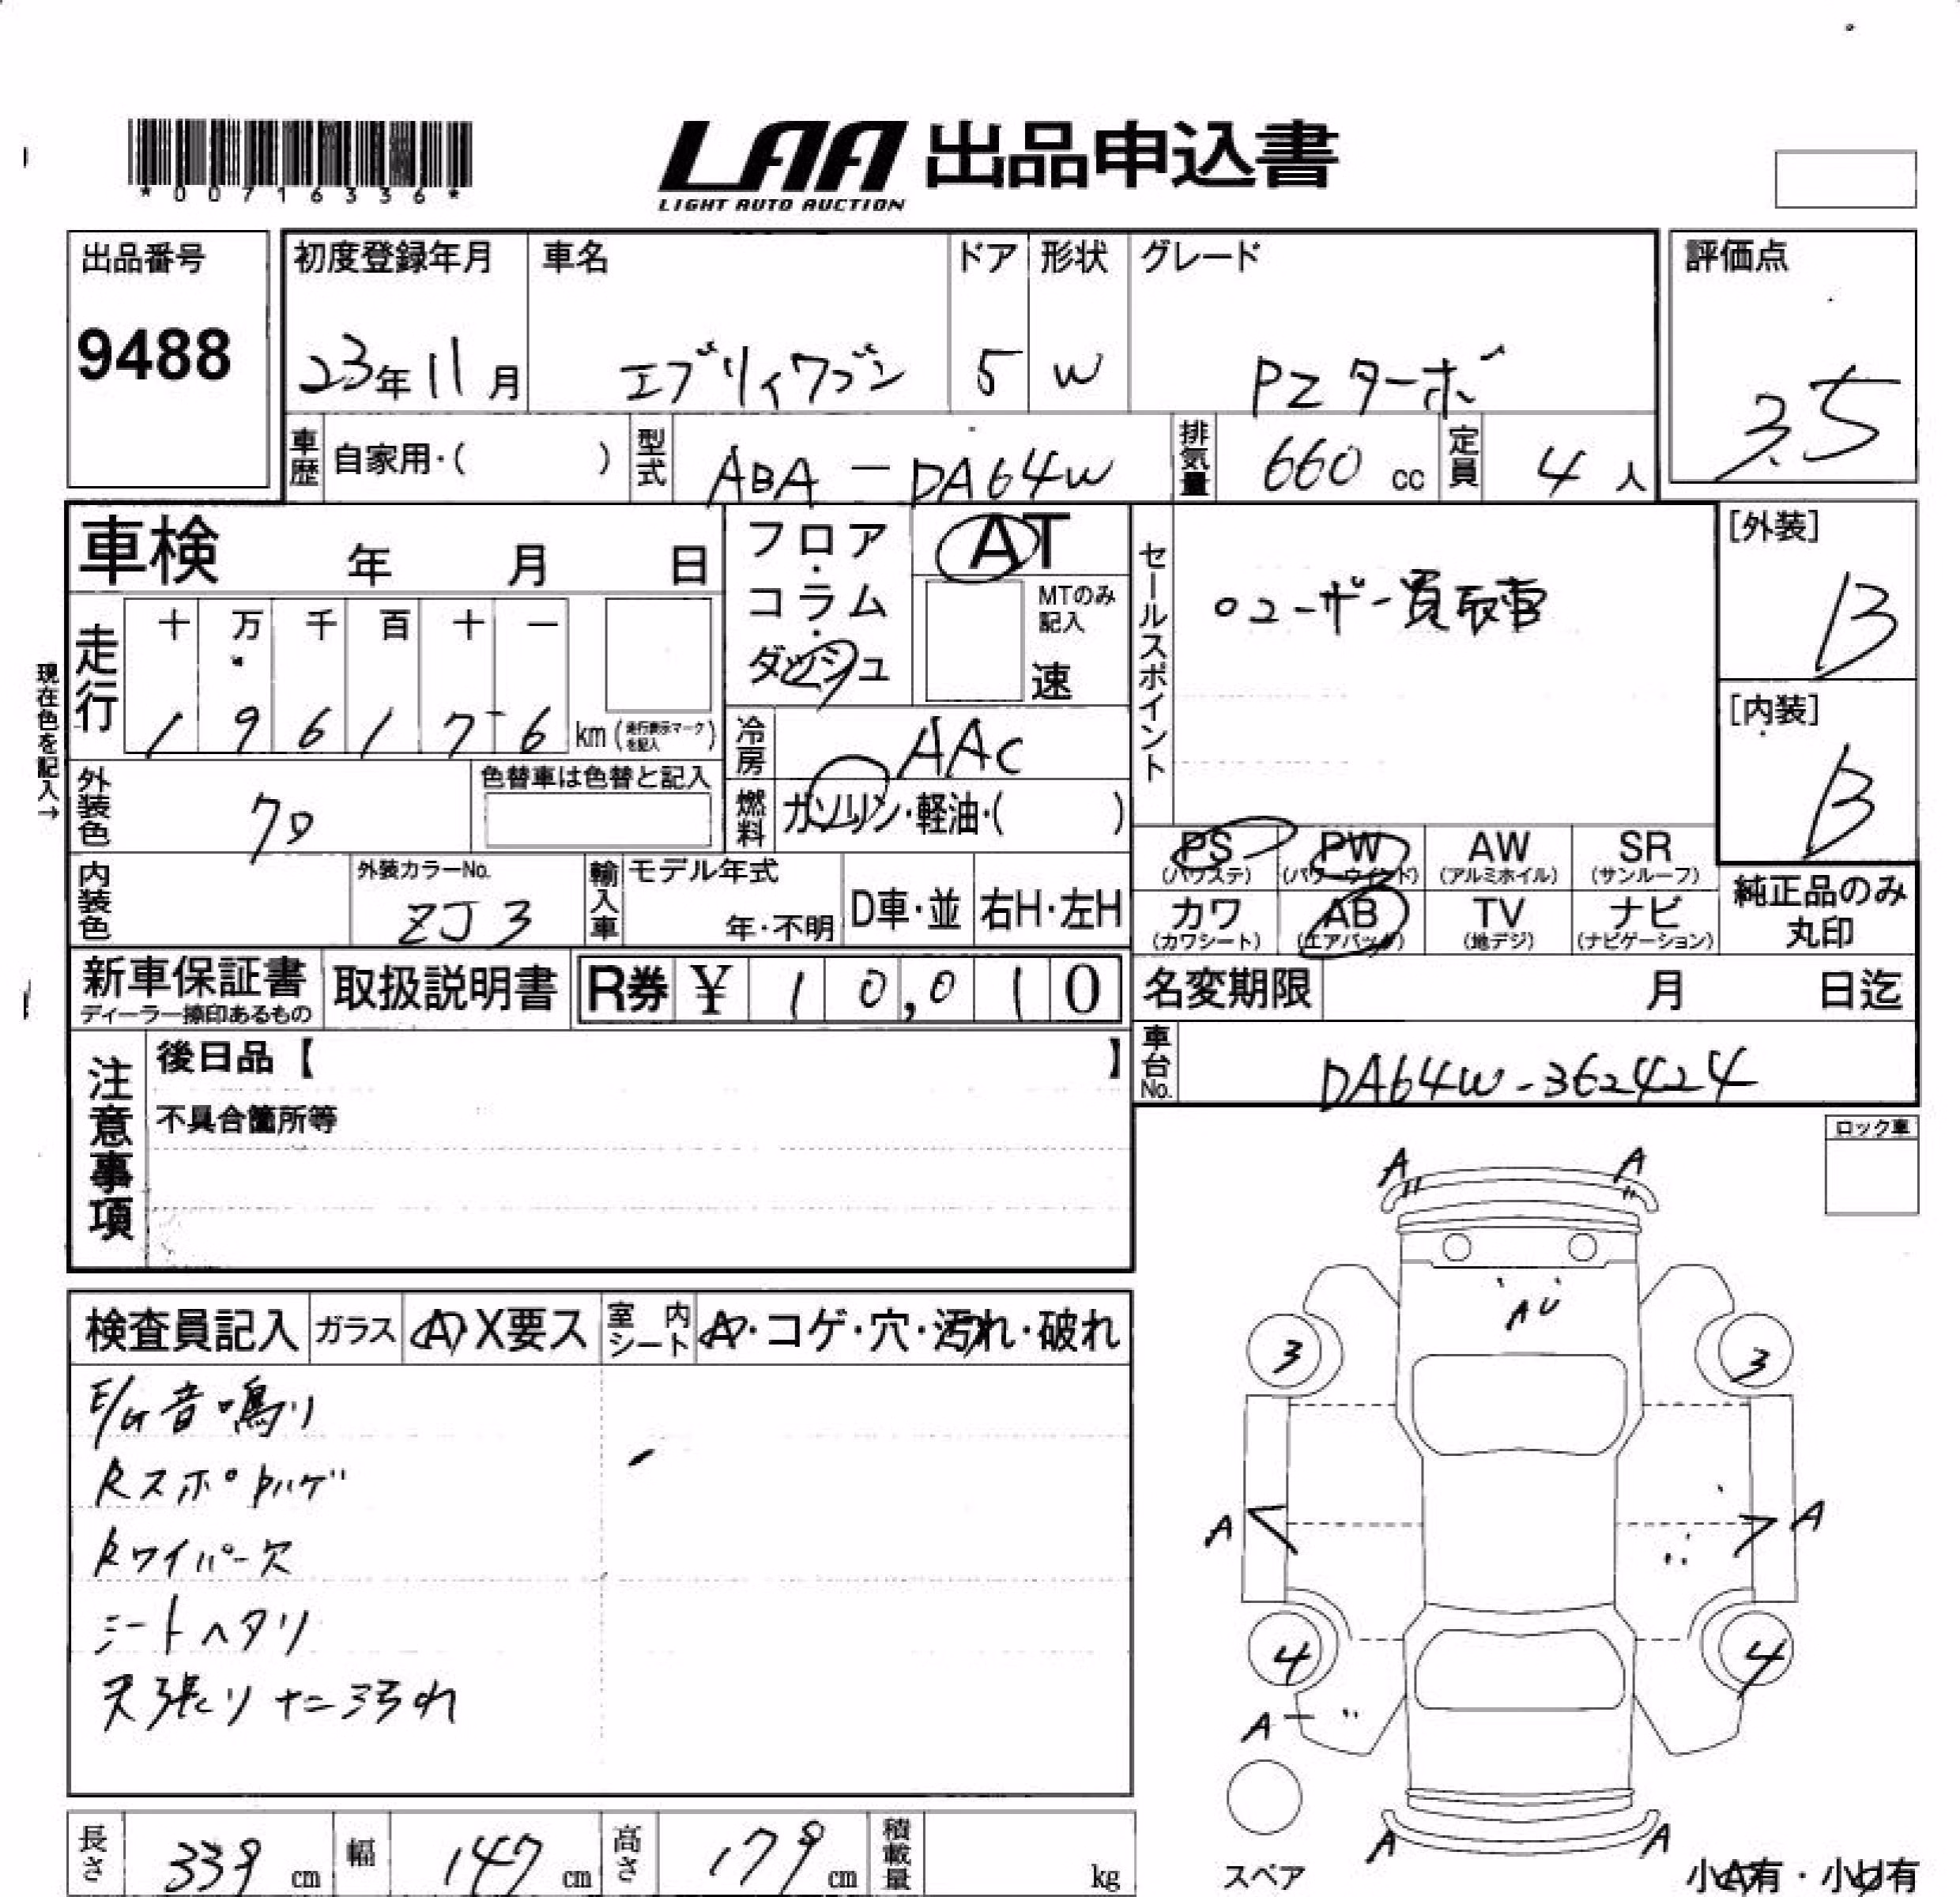 *00716336*
LAA 出品申込書
LIGHT AUTO AUCTION
出品番号
9488
初度登録年月 車名 ドア 形状 グレード
23年11月 エブリィワゴン 5 W PZターボ
評価点
3.5
車歴 自家用・( ) 型式 ABA-DA64W 排気量 660cc 定員 4人
車検 年 月 日
フロア・コラム・ダッシュ
AT
MTのみ記入
速
セールスポイント
○ユーザー買取車
[外装]
B
[内装]
B
現在色を記入→
走行 十 万 千 百 十 一
1 9 6 1 7 6 km(走行表示マークを記入)
冷房 AAC
燃料 ガソリン・軽油・( )
外装色 クロ
色替車は色替と記入
内装色
外装カラーNo.
ZJ3
輸入車 モデル年式
年・不明 D車・並 右H・左H
PS(パワステ) PW(パワーウインド) AW(アルミホイル) SR(サンルーフ)
カワ(カワシート) AB(エアバッグ) TV(地デジ) ナビ(ナビゲーション)
純正品のみ丸印
新車保証書
ディーラー捺印あるもの
取扱説明書
R券 ¥ 10,010
名変期限 月 日迄
車台No. DA64W-362424
注意事項
後日品【 】
不具合箇所等
ロック車
検査員記入 ガラス A X要ス 室内シート A・コゲ・穴・汚れ・破れ
E/G音鳴り
Rスポハゲ
Rワイパー欠
シートヘタリ
天張りナニ汚れ
A A
AU
3 3
A A
4 4
A
A A
スペア
小A有・小U有
長さ 339cm 幅 147cm 高さ 179cm 積載量 kg